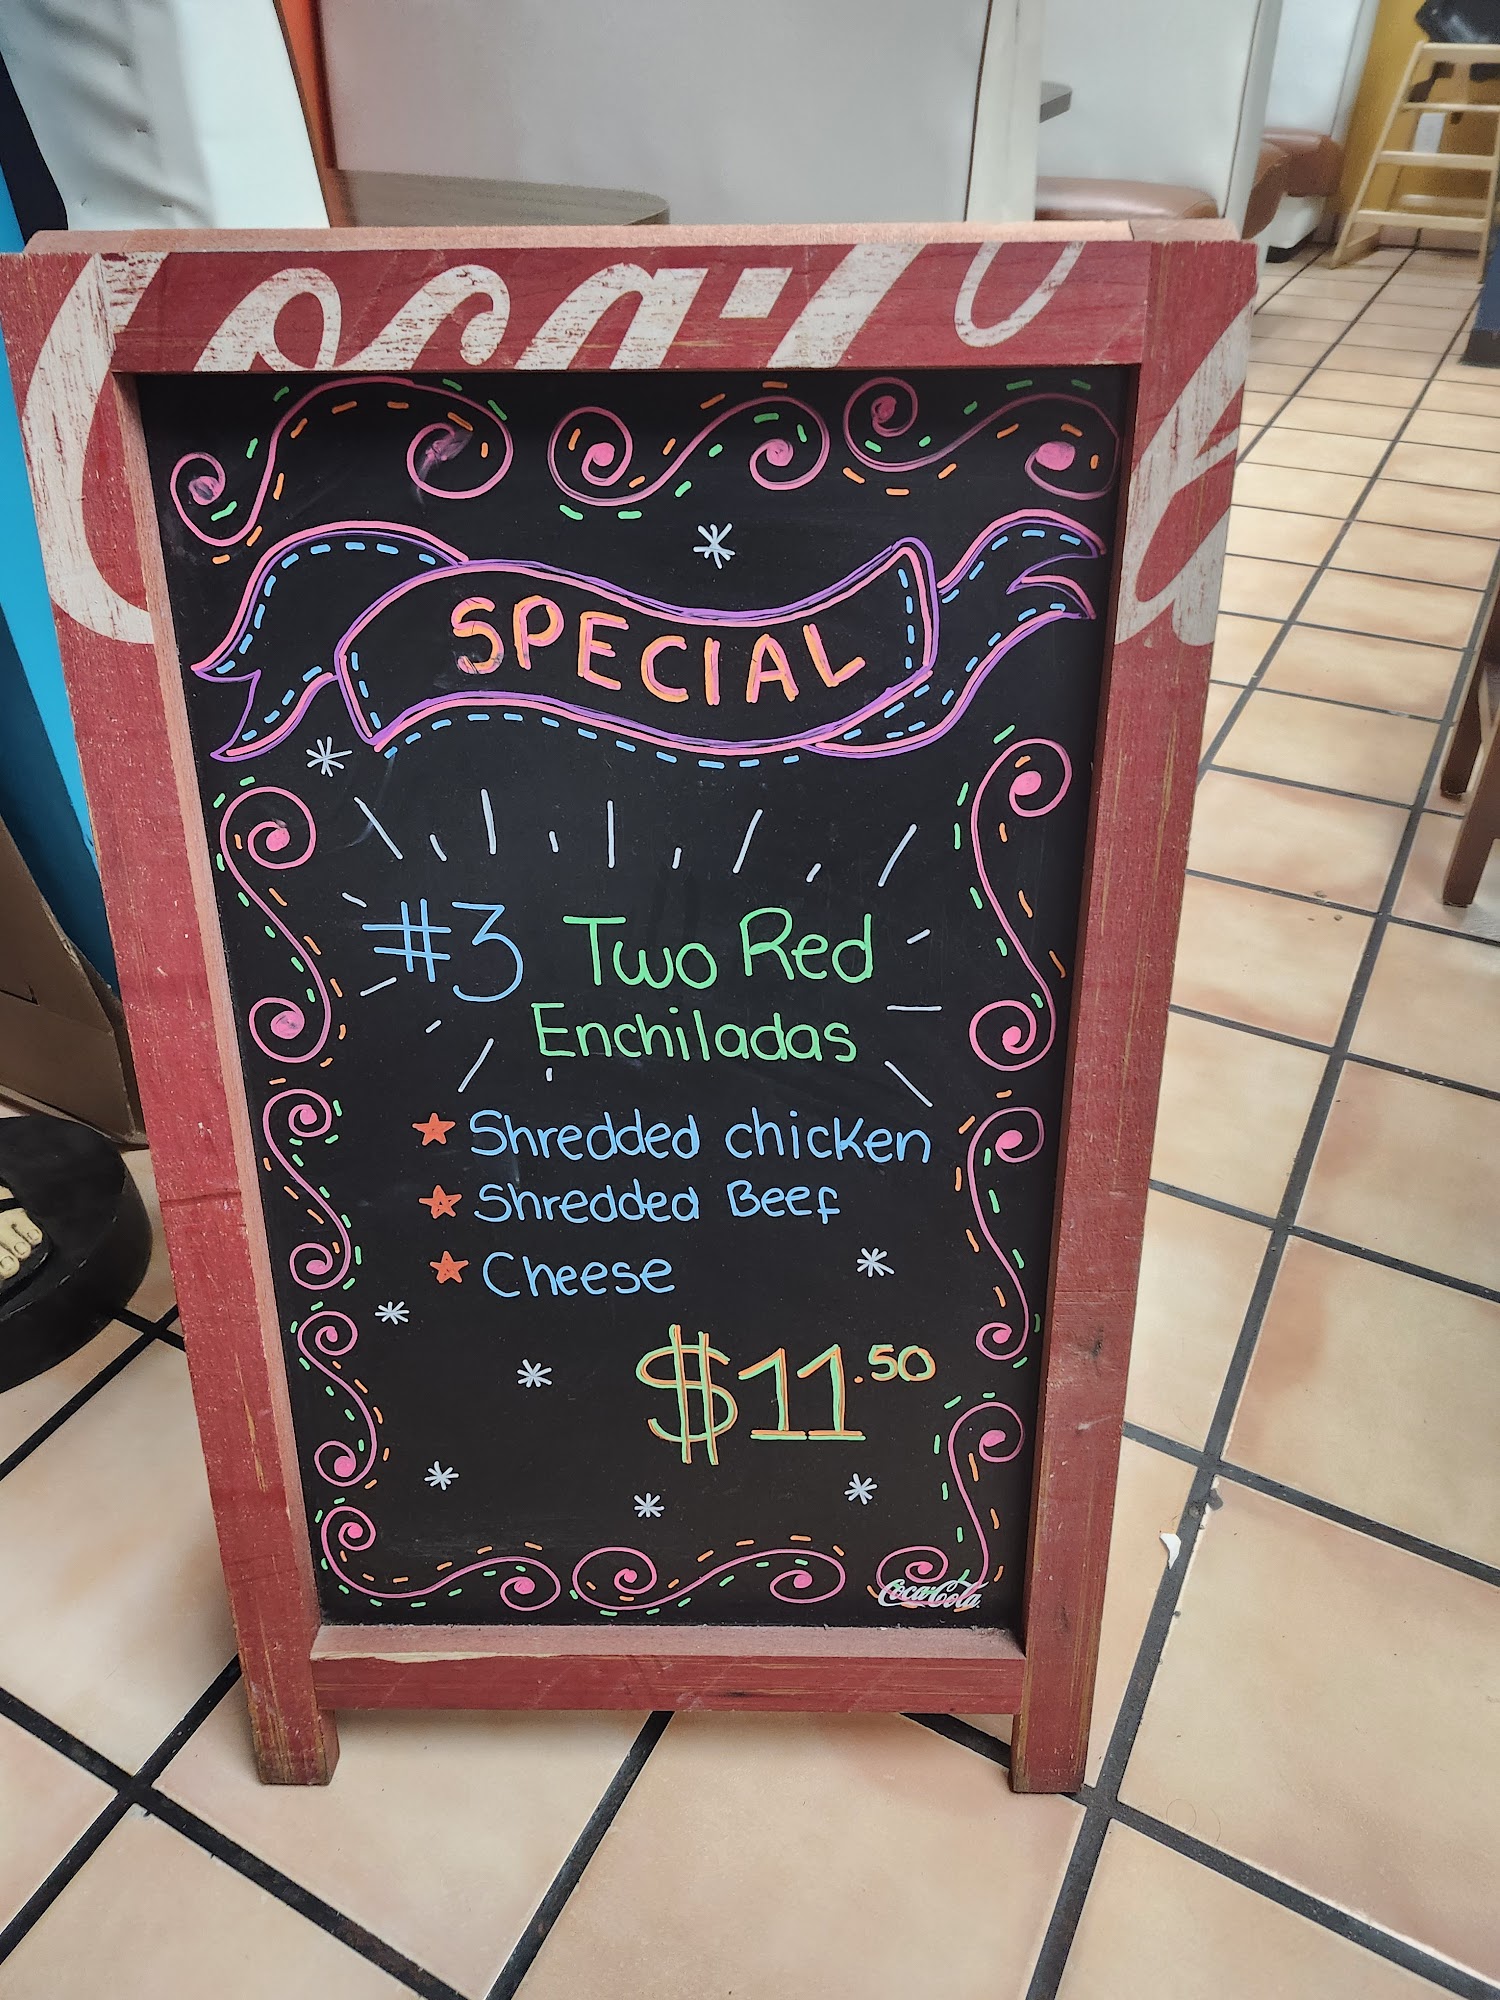 Coca-Cola
SPECIAL
#3 Two Red
Enchiladas
Shredded chicken
Shredded Beef
Cheese
$11.50
Coca-Cola